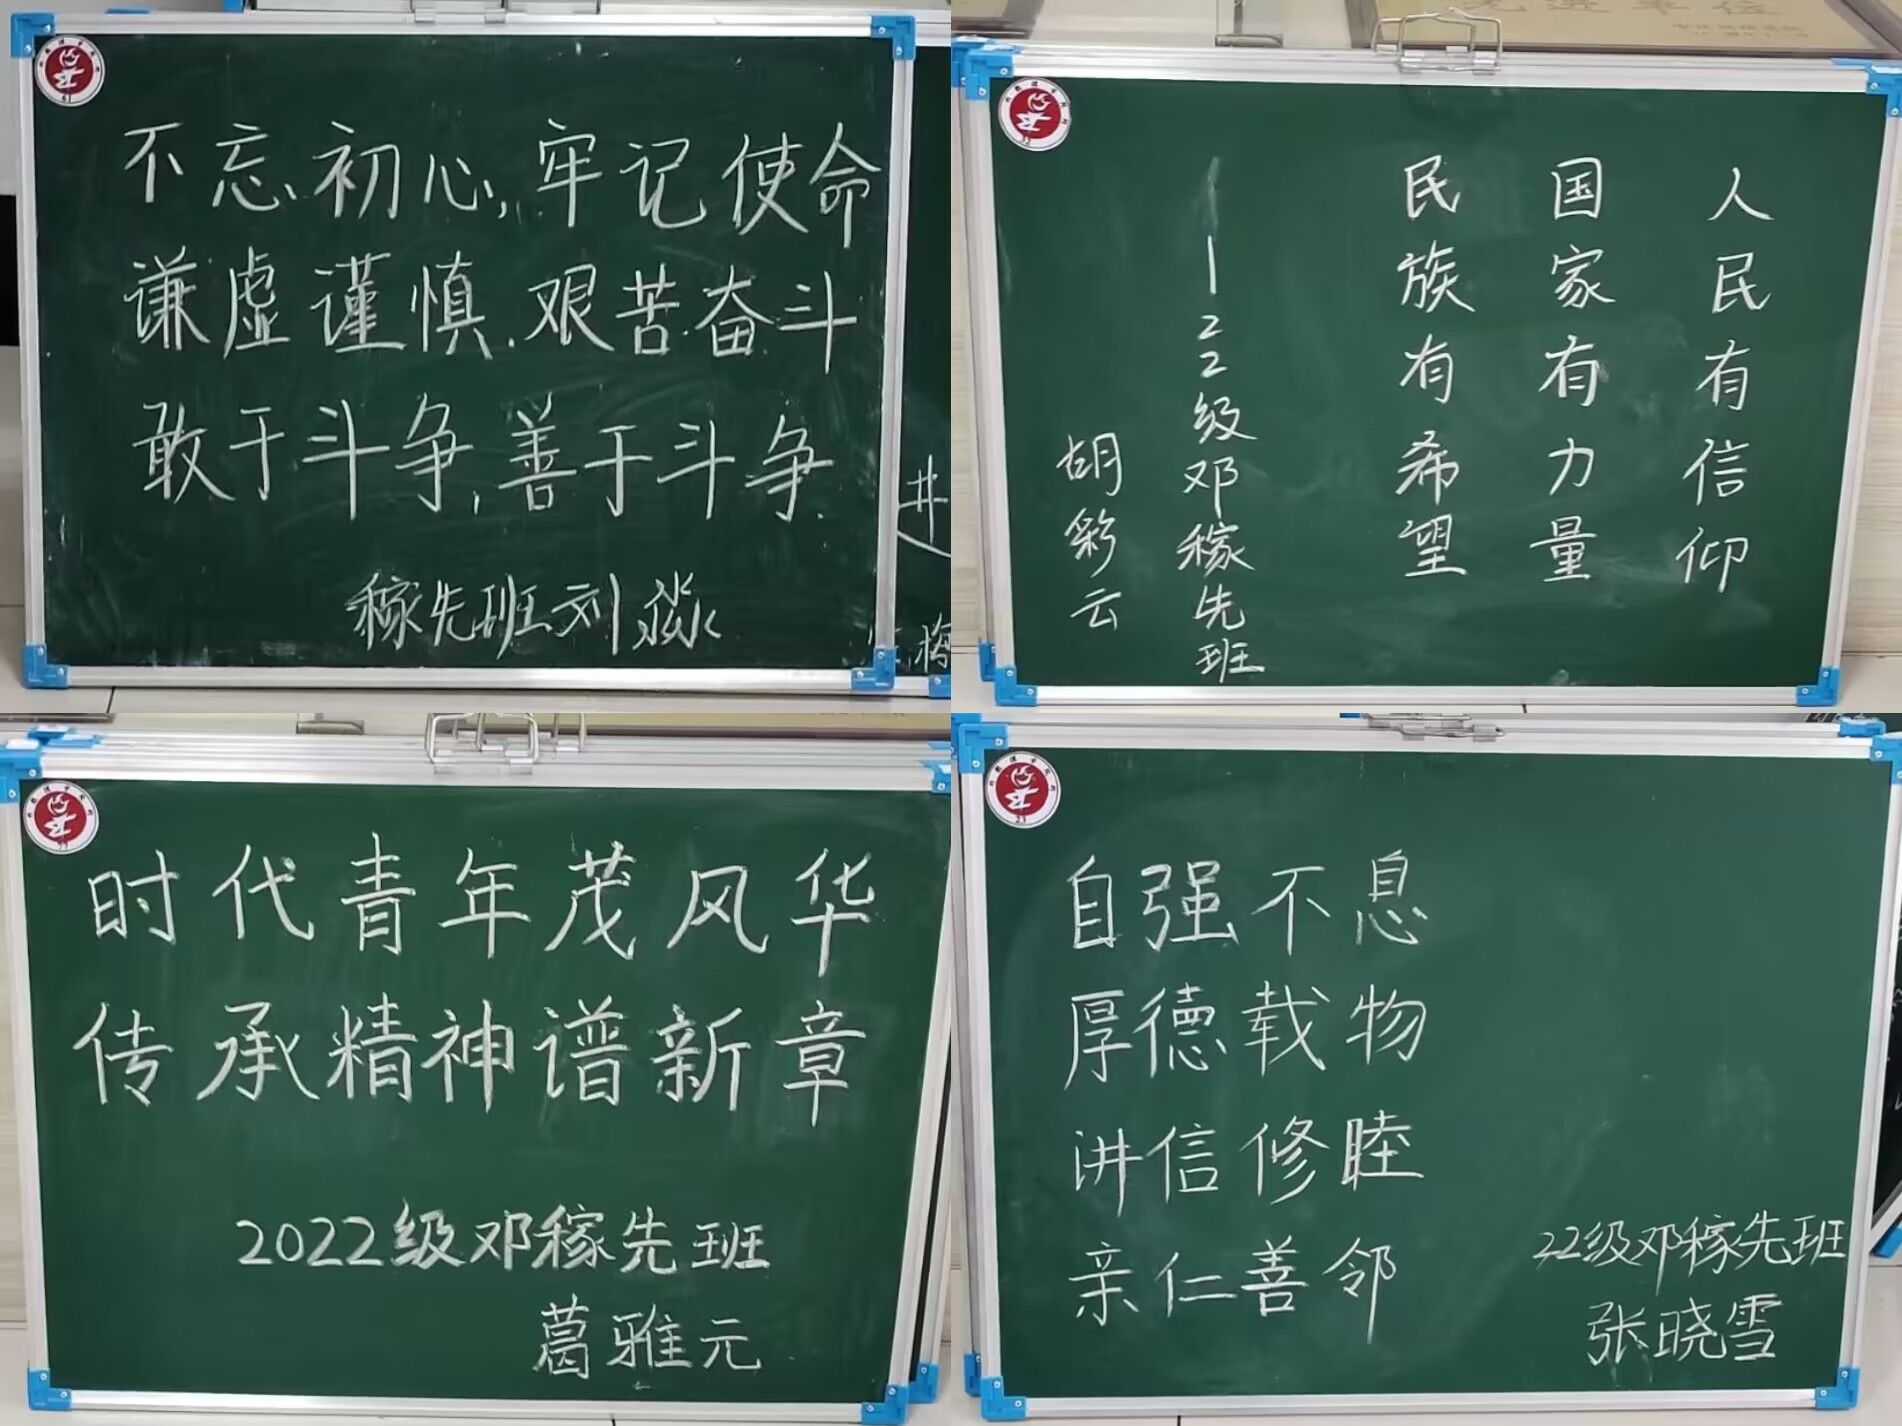 不忘初心,牢记使命
谦虚谨慎.艰苦奋斗
敢于斗争,善于斗争.
稼先班刘淼
进
梅
人民有信仰
国家有力量
民族有希望
——22级邓稼先班
胡彩云
时代青年茂风华
传承精神谱新章
2022级邓稼先班
葛雅元
自强不息
厚德载物
讲信修睦
亲仁善邻
22级邓稼先班
张晓雪